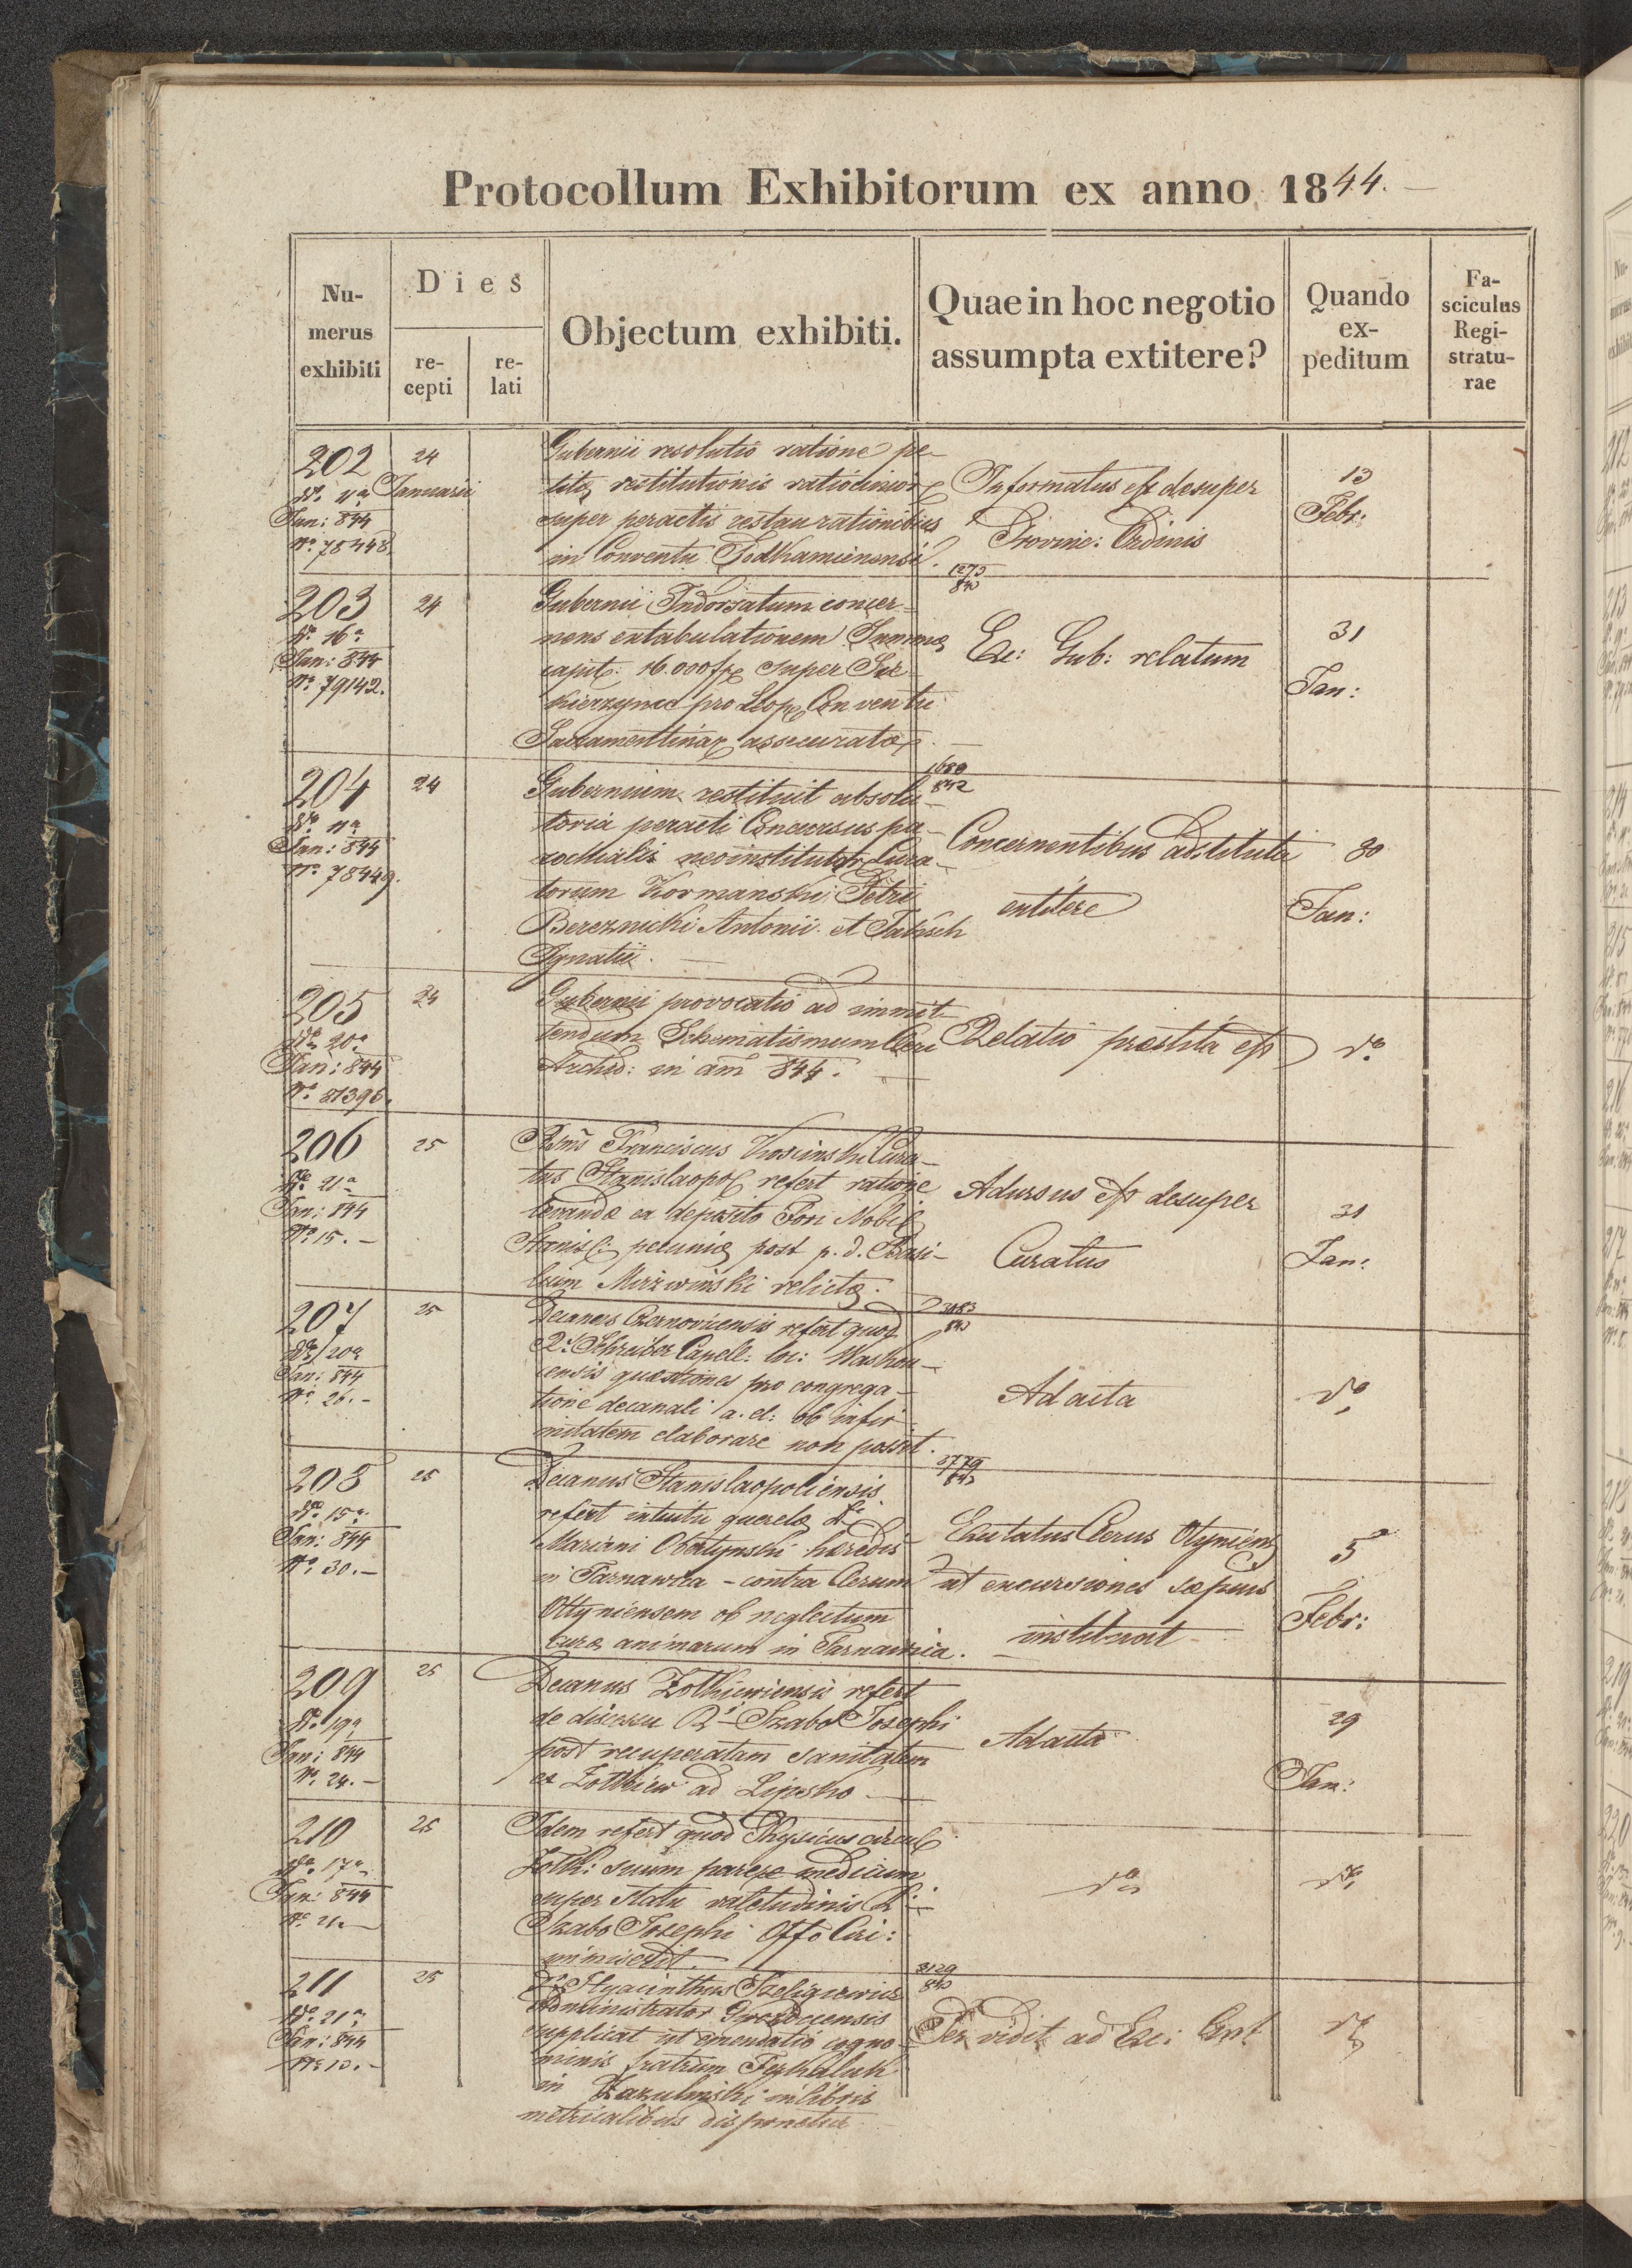 Protocollum Exhibitorum ex anno 1844.
Nu-
merus
exhibiti
Dies
re-
cepti
re-
lati
Objectum exhibiti.
Quae in hoc negotio
assumpta extitere?
Quando
ex-
peditum
Fa-
sciculus
Regi-
stratu-
rae
202
Jan: 844
No 78448
24
Januarii
Gubernii resolutio ratione pe-
titæ restitutionis
super peractis restaurationibus
in Conventu Podkamienensi.
Informatus est desuper
Provinc: Ordinis
13
Febr:
203
do 16a
Jan: 844
No 79142.
24
Gubernii Indorsatum concer-
nens extabulationem Summæ
capit: 16.000 super
pro Leop Conventu
assecuratæ
1273
843
Ex: Gub: relatum
31
Jan:
204
Jan: 844
No 78449.
24
Gubernium restituit absolu-
toria peracti Concursus pa-
rochialis neoinstitutor Cura-
torum Kormanski Petri
Bereznicki Antonii et
Ignatii.
1680
842
Concernentibus adstituta
extitere
30
Jan:
205
do 20a
Jan: 844
No 81396.
24
Gubernii provocatio ad immit-
tendum Schematismum Cleri
Archid: in am 844.
Relatio præstita est
do
206
do 21a
Jan: 844
No 15.-
25
Franciscus Kosinski Cura-
tus Stanislaopol refert ratione
levandæ ex deposito Fori Nobil
Stanisl: pecuniæ post p. d. Basi-
lium relictæ.
Adursus est desuper
Curatus
31
Jan:
207
do 20a
Jan: 844
No 26.-
25
Decanus Czernoviensis refert quod
R: Schreiber Capell: loc:
censis quæstiones pro congrega-
tione decanali a. el: ob infir-
mitatem elaborare non possit.
3183
843
Ad acta
do
208
do 15a
Jan: 844
No 30.-
25
Decanus Stanislaopoliensis
refert intuitu querelæ
Mariani hæredis
in Tarnawica - contra Clerum
Ottyniensem ob neglectum
curæ animarum in Tarnawica.
3779
843
Clerus Otyniens
ut excursiones sæpius
instituat
5
Febr:
209
do 19a
Jan: 844
No 24.-
25
Decanus Zolkiewiensis refert
de discessu Rdi Szabo Josephi
post recuperatam sanitatem
ex Zolkiew ad Lipsko
Ad acta
29
Jan:
210
do 17a
Jan: 844
No 21.-
25
Idem refert quod Physicus circul
Zolk: suum parere medicum
super statu valetudinis
Szabo Josephi Offo Cir:
immiserit.
do
do
211
do 21a
Jan: 844
No 10.-
25
Hyacinthus Szeligiewicz
Administrator
supplicat ut emendatio cogno-
minis fratrum
in in libris
metricalibus disponetur
3129
843
vidit ad Exc:
do